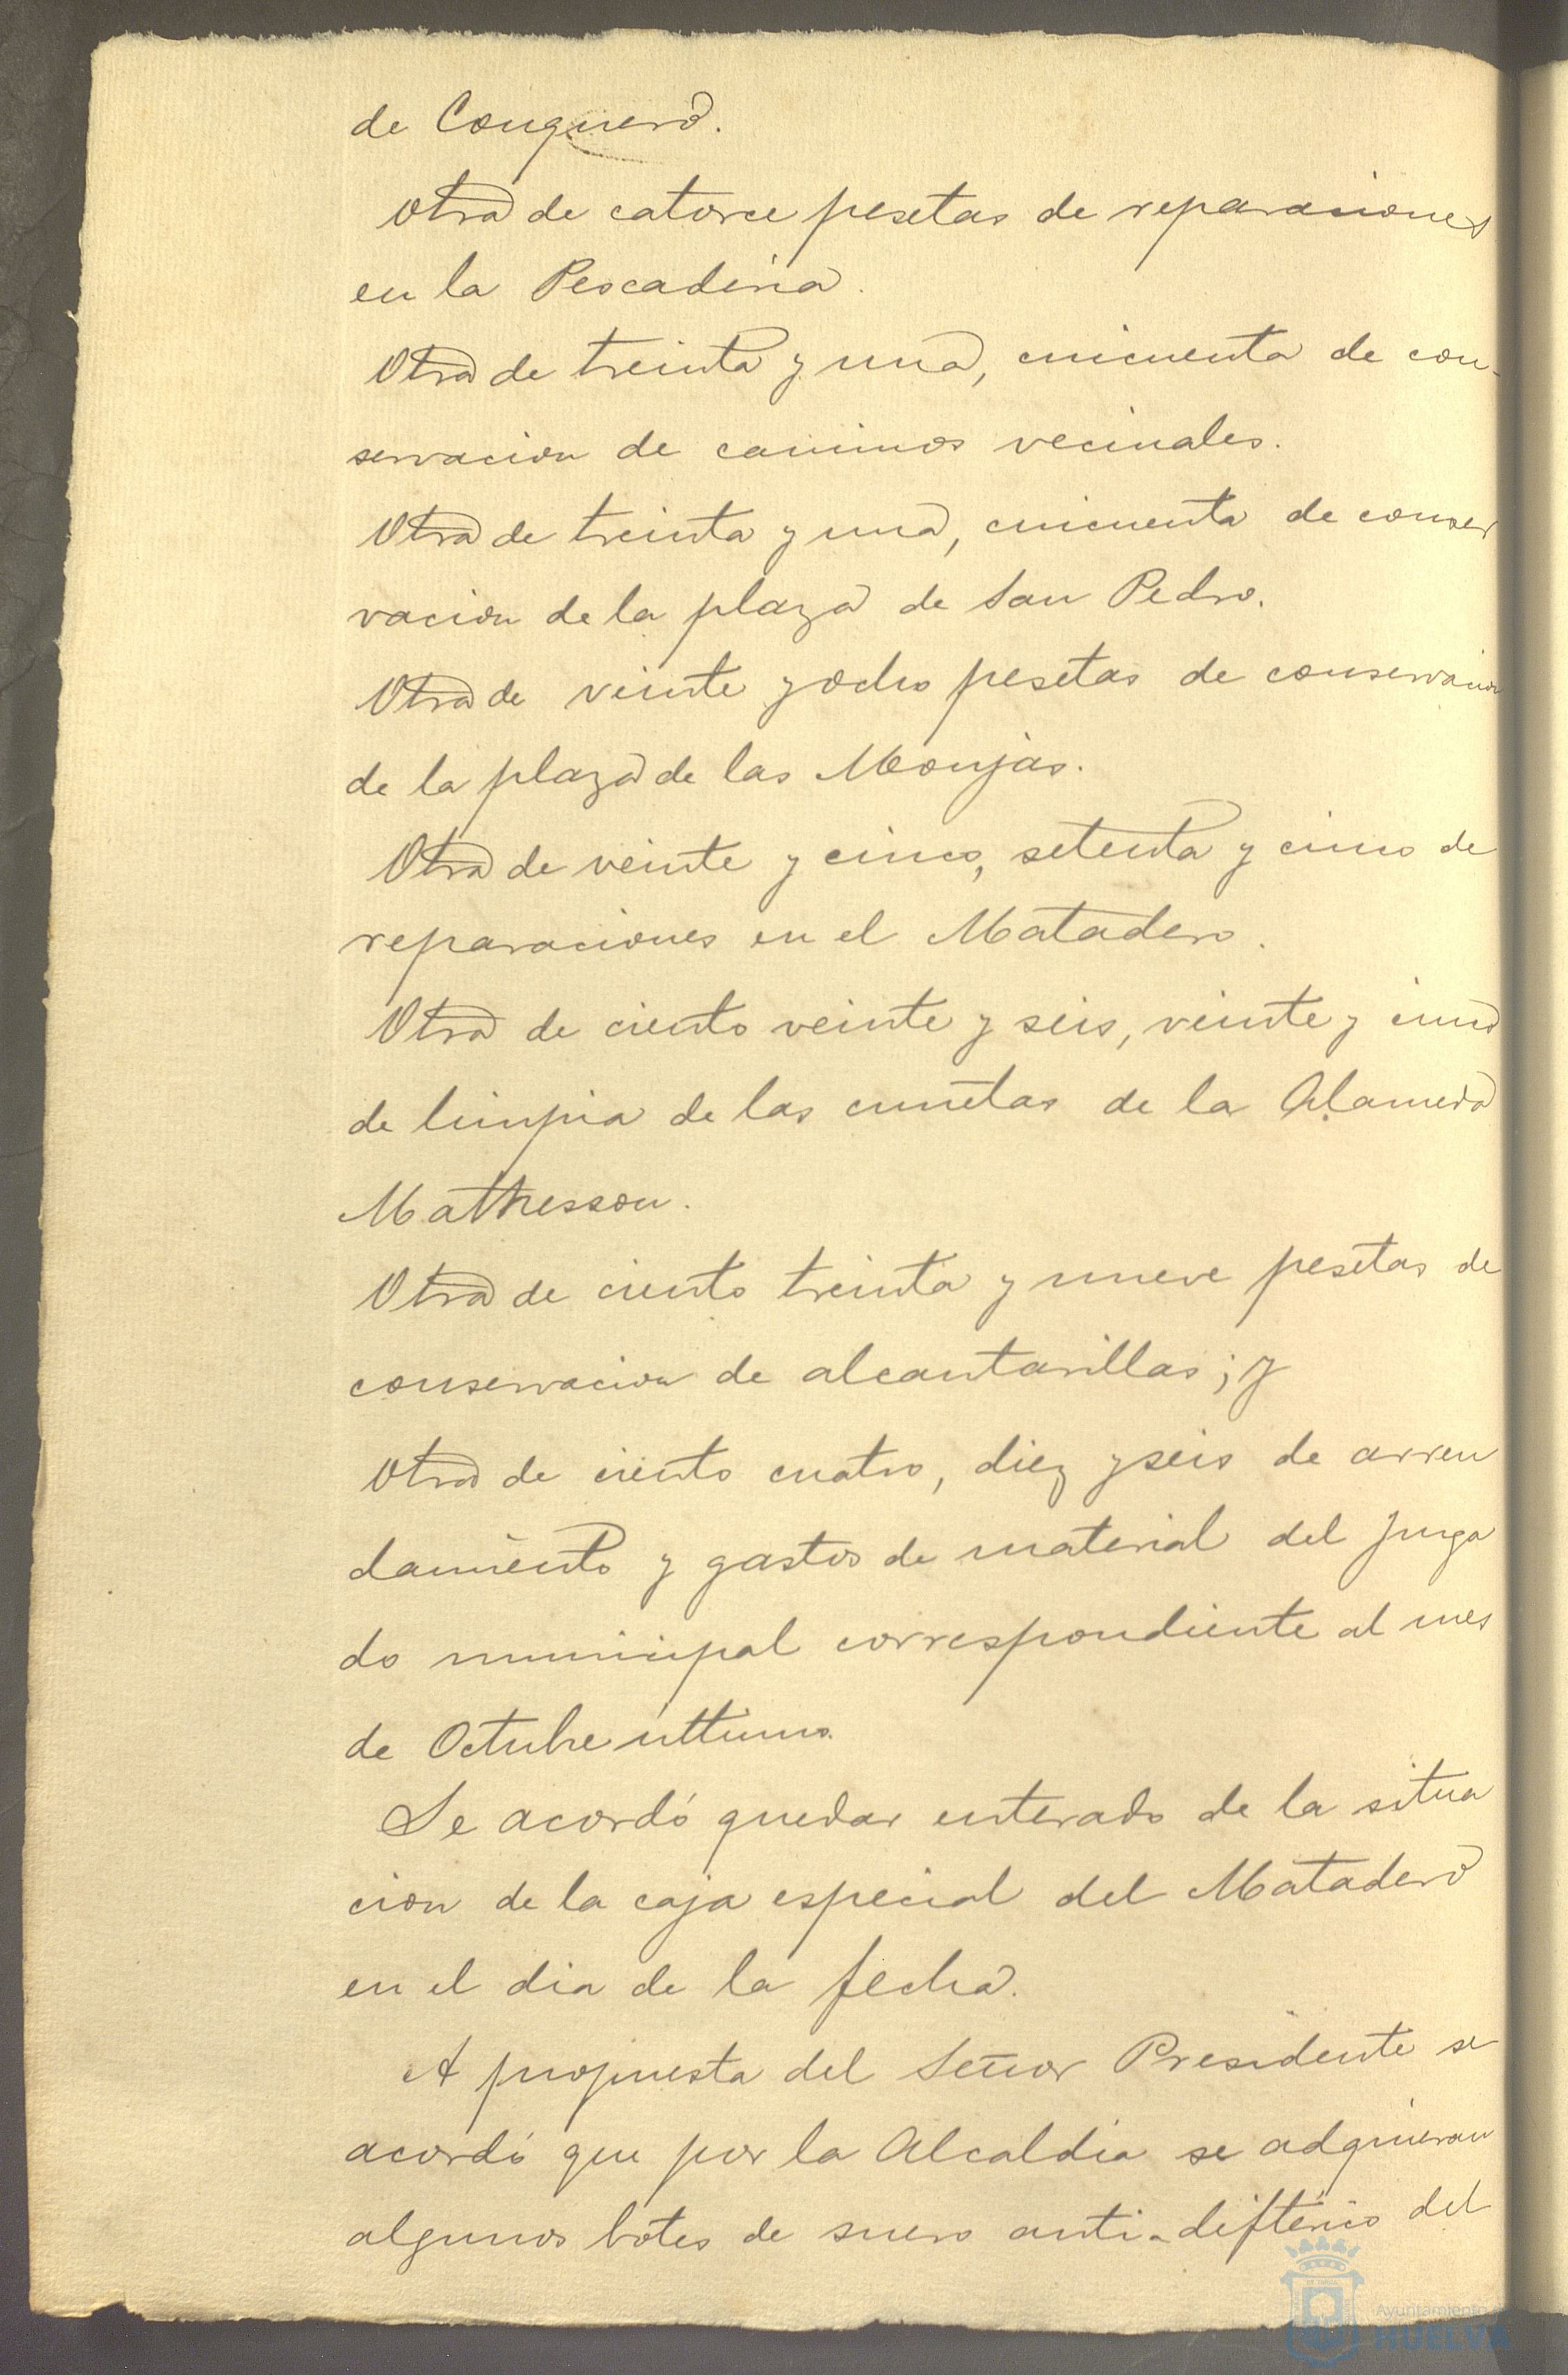 de Conquero.
Otra de catorce pesetas de reparaciones
en la Pescaderia.
Otra de treinta y una, cincuenta de con-
servacion de caminos vecinales.
Otra de treinta y una, cincuenta de conser
vacion de la plaza de San Pedro.
Otra de veinte y ocho pesetas de conservacion
de la plaza de las Monjas.
Otra de veinte y cinco, setenta y cinco de
reparaciones en el Matadero.
Otra de ciento veinte y seis, veinte y cinco
de limpia de las cunetas de la Alameda
Mathesson.
Otra de ciento treinta y nueve pesetas de
conservacion de alcantarillas; y
Otra de ciento cuatro, diez y seis de arren
damiento y gastos de material del Juzga
do municipal correspondiente al mes
de Octubre ultimo.
Se acordó quedar enterado de la situa
cion de la caja especial del Matadero
en el dia de la fecha.
A propuesta del Señor Presidente se
acordó que por la Alcaldia se adquieran
algunos botes de suero anti-diftérico del
Ayuntamiento de
HUELVA